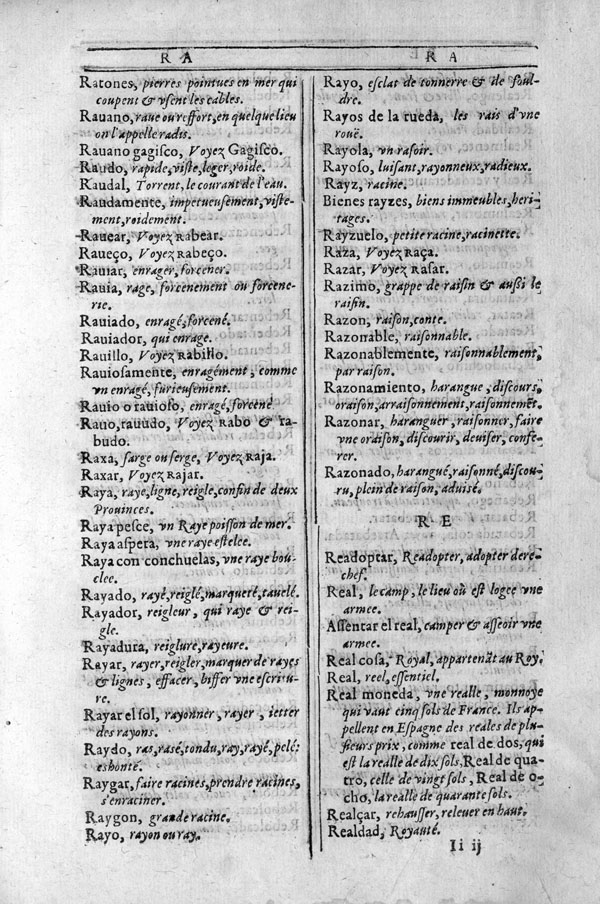 RA
Ratones, pierres pointues en mer qui
coupent & vſent les cables.
Rauano, raue ou reffort, en quelque lieu
on l'appelle radis.
Rauano gagiſco, Voyez Gagiſco.
Raudo, rapide, viſte, leger, roide.
Raudal, Torrent, le courant de l'eau.
Raudamente, impetueuſement, viſte-
ment, roidement.
Rauear, Voyez Rabear.
Raueço, Voyez Rabeço.
Rauiar, enrager, forcener.
Rauia, rage, forcenement ou forcene-
rie.
Rauiado, enragé, forcené.
Rauiador, qui enrage.
Rauillo, Voyez Rabillo.
Rauioſamente, enragément, comme
vn enragé, furieuſement.
Rauio o rauioſo, enragé, forcené
Rauo, rauudo, Voyez Rabo & ra-
budo.
Raxa, ſarge ou ſerge, Voyez Raja.
Raxar, Voyez Rajar.
Raya, raye, ligne, reigle, confin de deux
Prouinces.
Raya peſce, vn Raye poiſſon de mer.
Raya aſpera, vne raye eſtelee.
Raya con conchuelas, vne raye bou-
clee.
Rayado, rayé, reiglé, marqueté, tauelé.
Rayador, reigleur, qui raye & rei-
gle.
Rayadura, reiglure, rayeure.
Rayar, rayer, reigler, marquer de rayes
& lignes, effacer, biffer vne eſcritu-
re.
Rayar el ſol, rayonner, rayer, ietter
des rayons.
Raydo, ras, rasé, tondu, ray, rayé, pelé:
eshonté.
Raygar, faire racines, prendre racines,
s'enraciner.
Raygon, grande racine.
Rayo, rayon ou ray.
RA
Rayo, eſclat de tonnerre & de foul-
dre.
Rayos de la rueda, les rais d'vne
rouë.
Rayola, vn raſoir.
Rayoſo, luiſant, rayonneux, radieux.
Rayz, racine.
Bienes rayzes, biens immeubles, heri-
tages.
Rayzuelo, petite racine, racinette.
Raza, Voyez Raça.
Razar, Voyez Raſar.
Razimo, grappe de raiſin & außi le
raiſin.
Razon, raiſon, conte.
Razonable, raiſonnable.
Razonablemente, raiſonnablement,
par raiſon.
Razonamiento, harangue, diſcours,
oraiſon, arraiſonnement, raiſonnemēt.
Razonar, haranguer, raiſonner, faire
vne oraiſon, diſcourir, deuiſer, confe-
rer.
Razonado, harangué, raiſonné, diſcou-
ru, plein de raiſon, aduisé.
RE
Readoptar, Readopter, adopter dere-
chef.
Real, le camp, le lieu où est logee vne
armee.
Aſſentar el real, camper & aſſeoir vne
armee.
Real coſa, Royal, appartenāt au Roy.
Real, reel, eſſentiel.
Real moneda, vne realle, monnoye
qui vaut cinq ſols de France. Ils ap-
pellent en Eſpagne des reales de plu-
ſieurs prix, comme real de dos, qui
est la realle de dix ſols, Real de qua-
tro, celle de vingt ſols, Real de o-
cho, la realle de quarante ſols.
Realçar, rehauſſer, releuer en haut.
Realdad, Royauté.
Ii ij